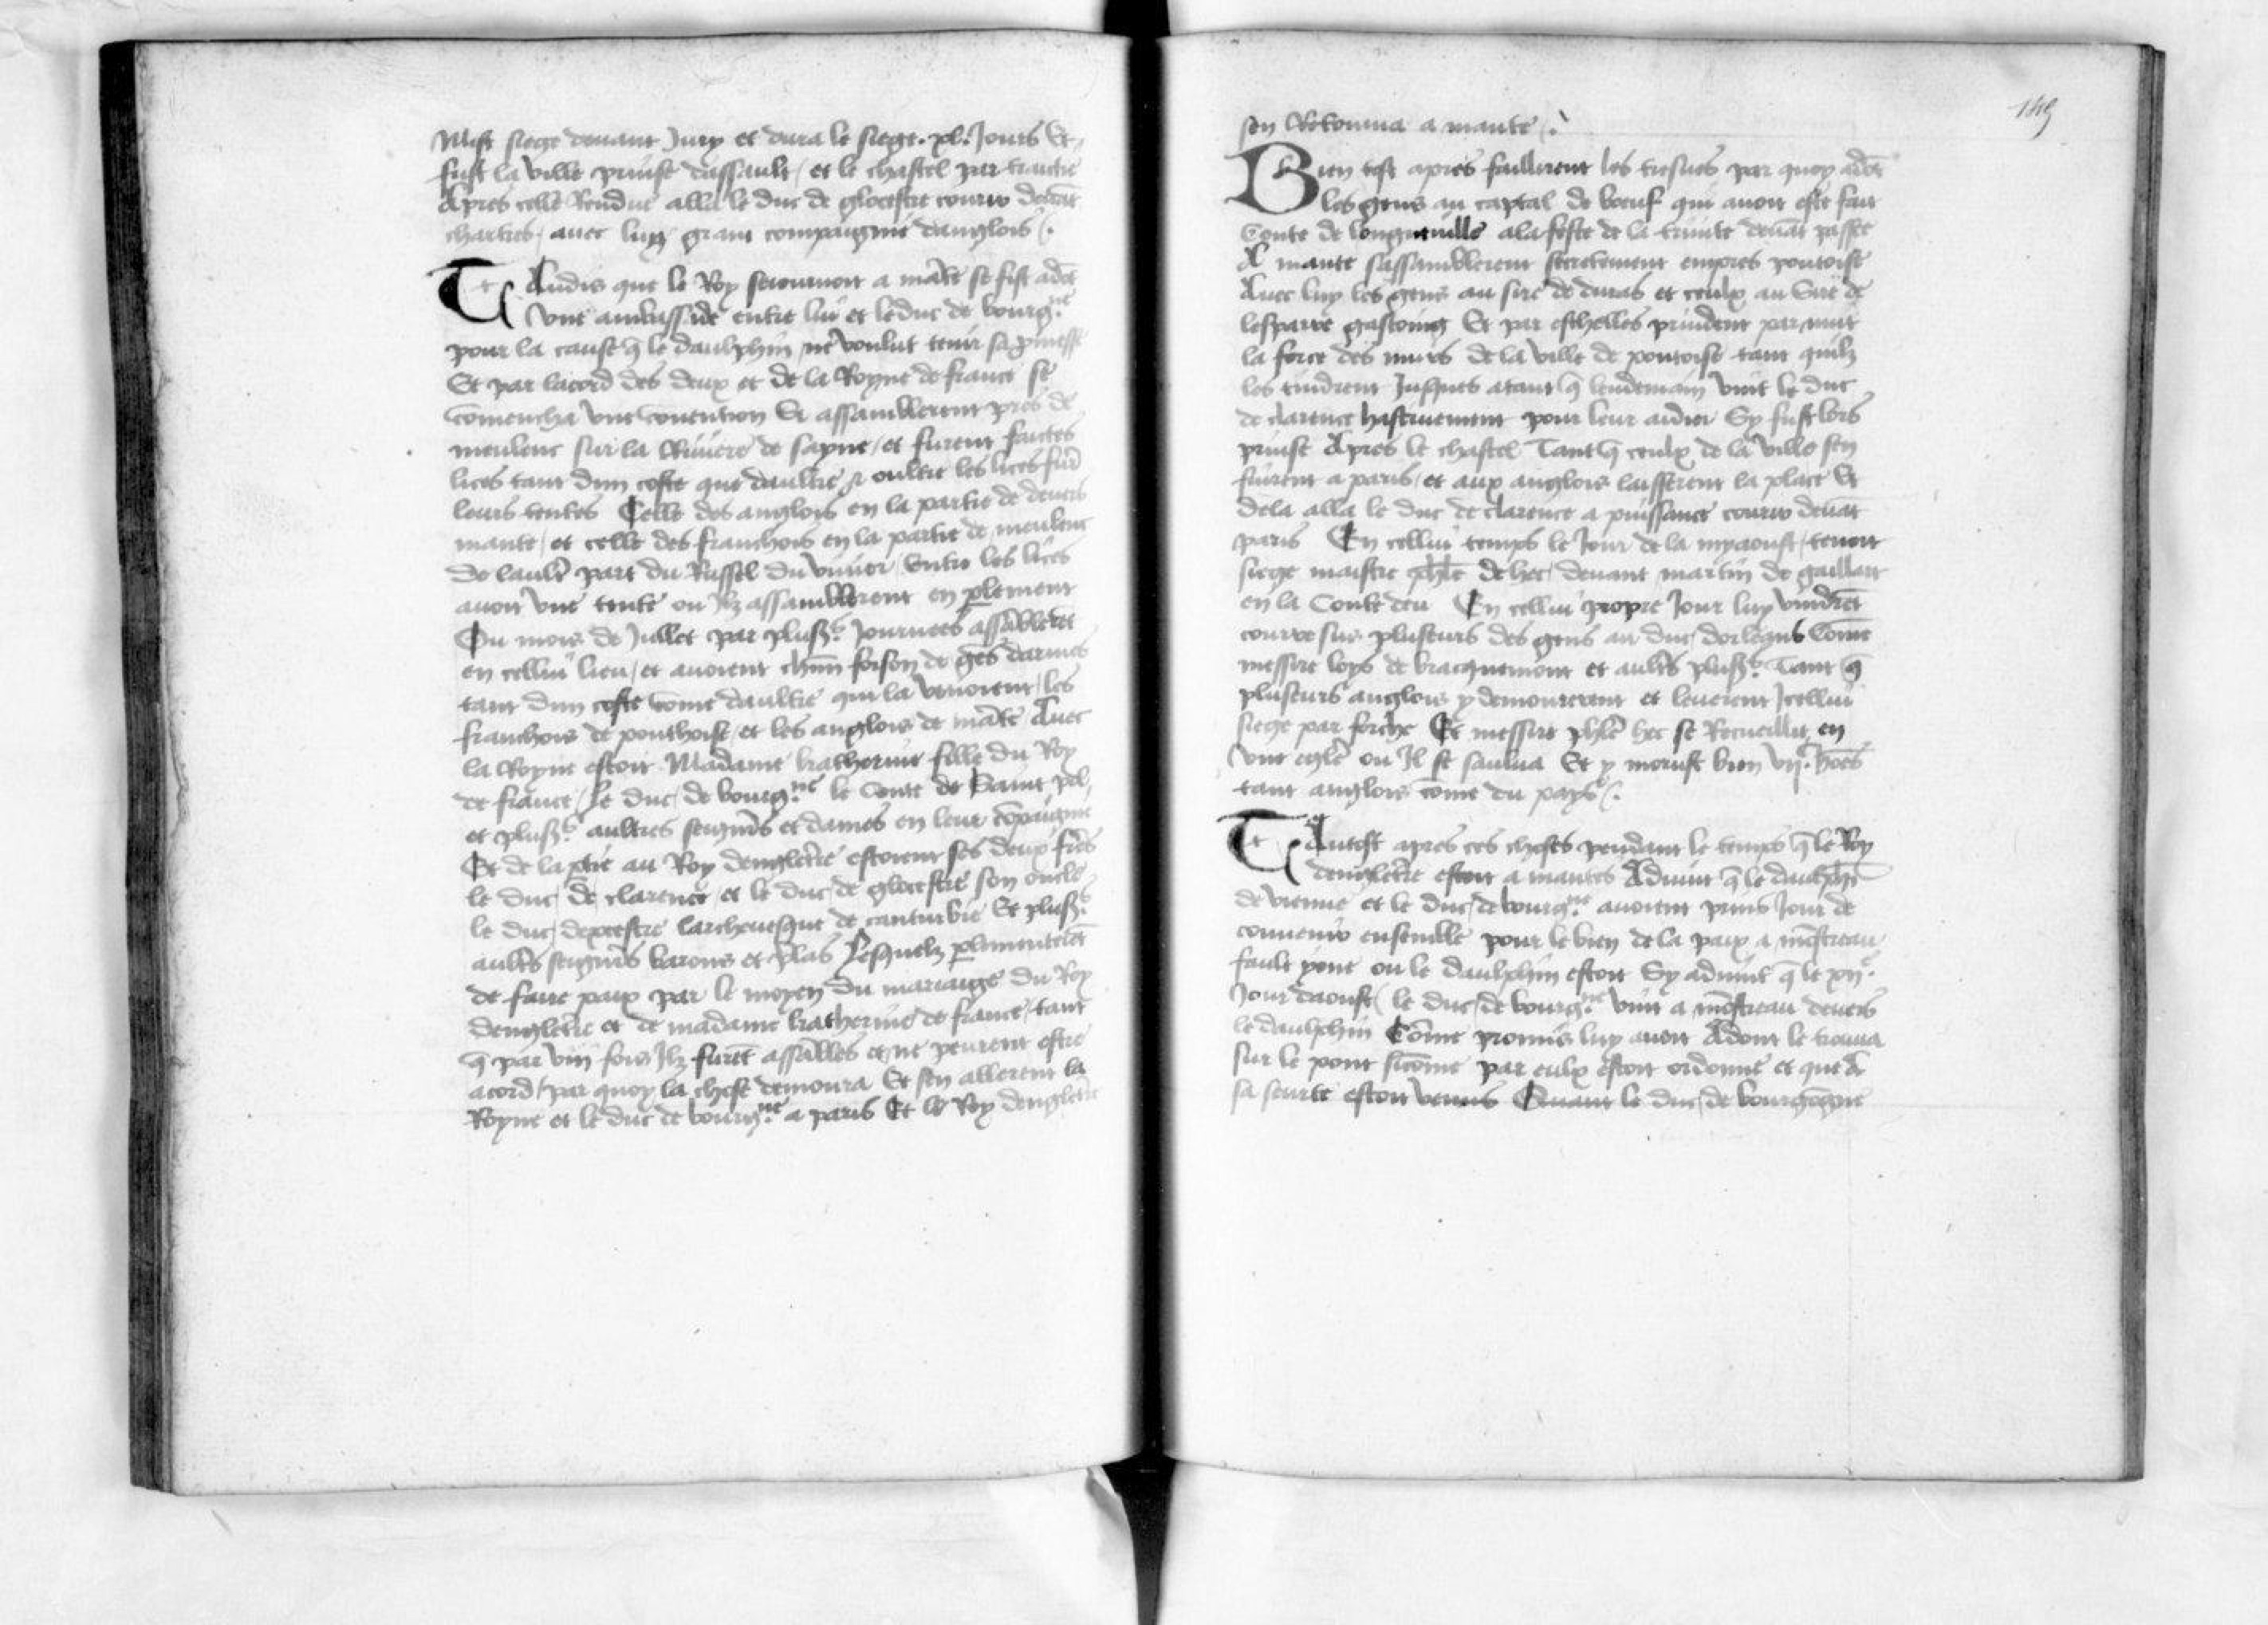 Mist siege deuant Jury et dura le siege .xl. Jours Et
fust la ville prinse dassault / et le chastel par traictie
Apres celle Rendue alla le duc de glocestre courir deuāt
chartres / auec luy grant compaignie danglois /.
TAndis que le Roy seiournoit a māte se fist adōt
Vne ambassade entre lui et leduc de bourg.ne
pour la cause q̄ le daulphin ne voulut tenir sa pmesse
Et par lacord des deux et de la Royne de france se
Comencha vne Conuention Et assamblerent pres de
meulenc sur la Riuiere de sayne / et furent faictes
lices tant dun coste que daultre / et oultre les lices furē
leurs tentes Celle des anglois en la partie de deuers
mante / et celle des franchois en la partie de meulenc
de laultr̄ part du Russel du viuier / Entre les lices
auoit vne tente ou Ilz assamblerent en plement
Ou mois de Jullet par plus.s Journees assāblerēt
en cellui lieu / et auoient chūn foison de gēs darmes
tant dun coste cōme daultre qui la venoient / les
franchois de ponthoise / et les anglois de māte Auec
la Royne estoit Madame katherine fille du Roy
de france / le duc de bourg.ne le Conte de Saint pol /
et plus.s aultres seignrs et dames en leur cōpaignie
Et de la ptie au Roy dengleterre estoient ses deux frēs
le duc de clarence / et le duc de glocestre son oncle
le duc dexcestre larcheuesque de canturbie Et plus.s
aultrs seignrs barons et plas Lesquelz plementerēt
de faire paix par le moyen du mariaige du Roy
dengletere et de madame katherine de france / tant
q̄ par viii fois Ilz furēt assābles et ne peurent estre
acord / par quoy la chose demoura Et sen allerent la
Royne et le duc de bourg.ne a paris Et le Roy dengletere
149
sen Retourna a mante /.
BIen tost apres faillirent les tresues par quoy adōt
les gens au captal de boeuf qui auoit este fait
Conte de longueuille ala feste de la trinite deuāt passee
A mante sassamblerent secretement empres pontoise
Auec luy les gens au sire de duras et ceulx au Sire de
lesparre gascoing Et par esthelles prindent par nuit
la force des murs de la ville de pontoise tant quilz
les tindrent Jusques atant q̄ lendemain vint le duc
de clarence hastiuement pour leur aidier Sy fust lors
prinse Apres le chastel Tant q̄ ceulx de la ville sen
fuirent a paris / et aux anglois laisserent la place Et
dela alla le duc de clarence a puissance courir deuāt
paris En cellui temps le Jour de la myaoust / tenoit
siege maistre phlē de hec / deuant martin de gaillart
en la Conte deu En cellui propre Jour luy vindrēt
courre sus pluseurs des gens au duc dorleans Cōme
messire loys de bracquemont et aultrs plus.s Tant q̄
pluseurs anglois y demourerent et leuerent Jcellui
siege par forche Et messire phlē hec se Recueillit en
vne eglē ou Il se saulua Et y morust bien vijc. hōes
tant anglois cōme du pays /.
TAntost apres ces choses pendant le temps q̄ le Roy
dengletere estoit a mantes Aduint q̄ le daulphin
de vienne et le duc de bourg.ne auoient prins Jour de
conuenir ensemble pour le bien de la paix a mōstreau
fault yone ou le daulphin estoit Sy aduint q̄ le xije.
Jour daoust / le duc de bourg.ne vint a mōstreau deuers
le daulphin Cōme promis luy auoit Adont le trouua
sur le pont sicōme par eulx estoit ordonne et que A
sa seurte estoit venus Quant le duc de bourgōgne